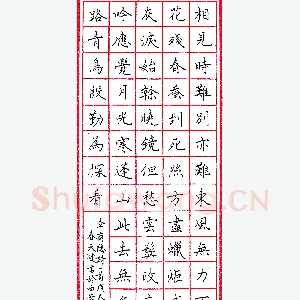 相見時難別亦難東風無力
花殘春蠶到死絲方盡蠟炬
灰淚始乾曉鏡但愁雲鬢改
吟應覺月光寒蓬山此去無
路青鳥殷勤為探看